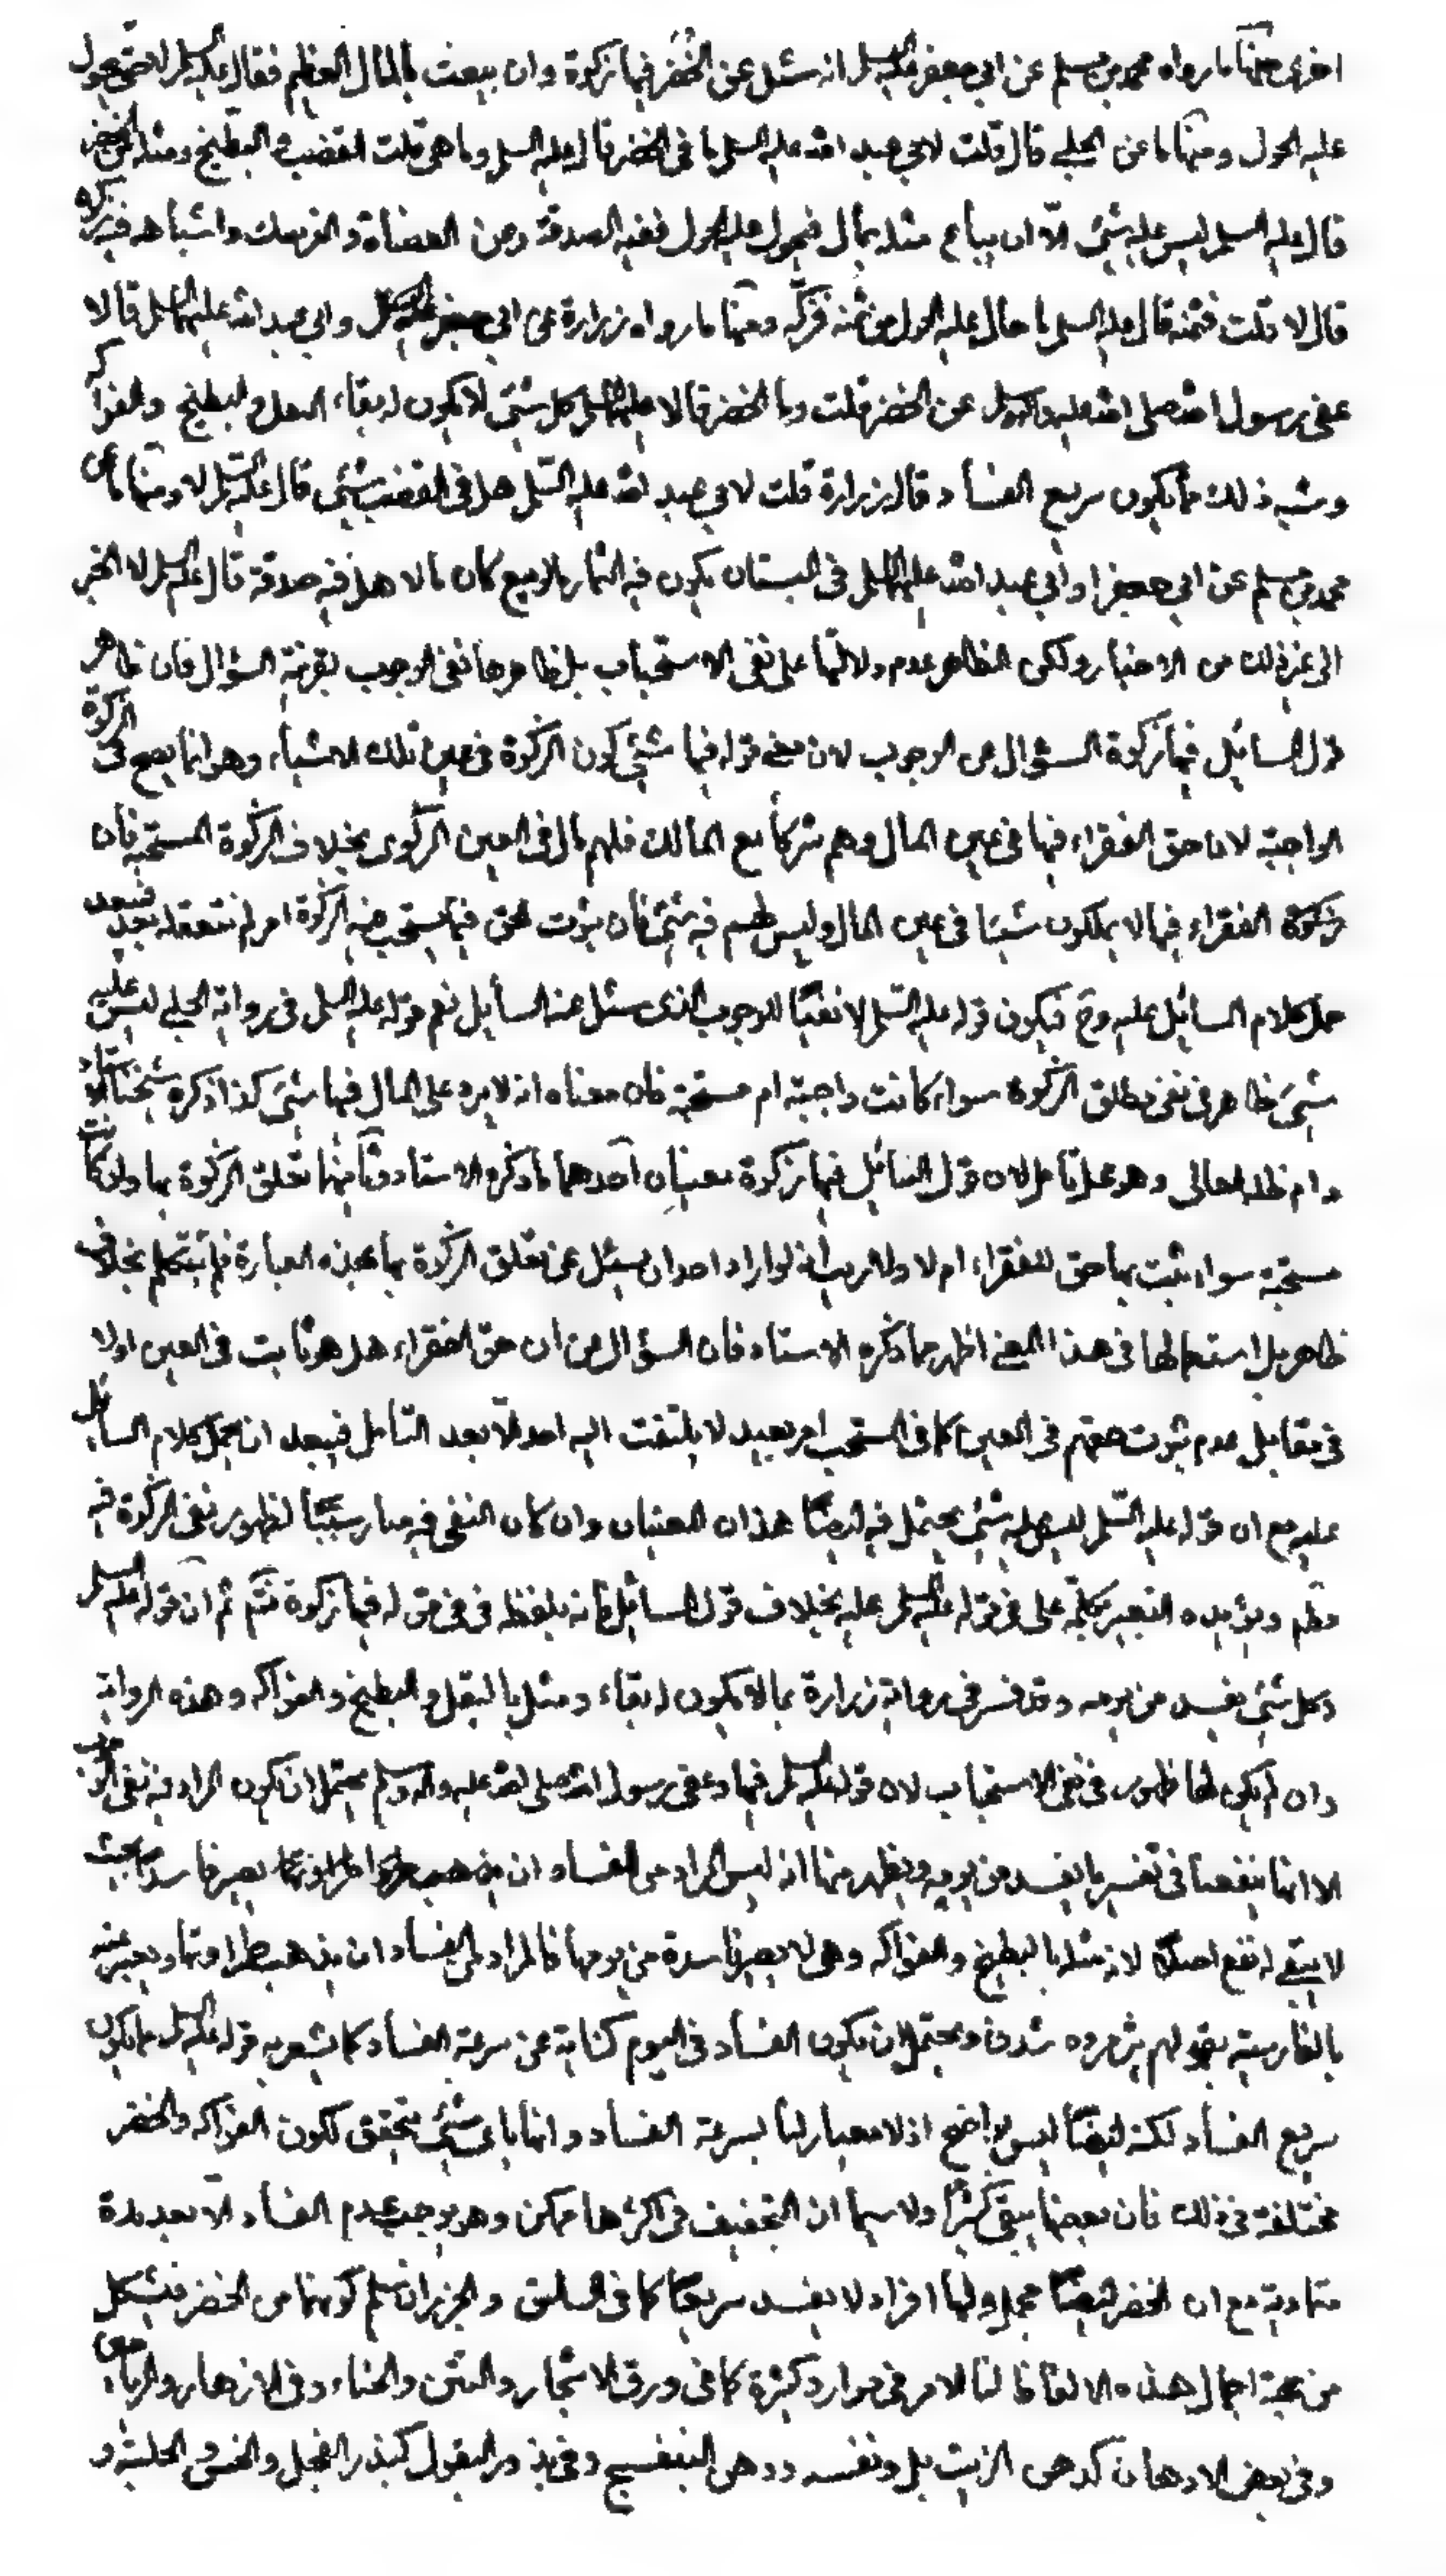 اخرى منها ما رواه محمد بن مسلم عن ابي جعفر عليه السلم انه سئل عن الخضر فيها زكوة وان بيعت بالمال العظيم فقال عليه السلم لا حتى يحول
عليه الحول ومنها ما عن الحلبي قال قلت لابي عبد الله عليه السلم ما في الخضر قال عليه السلم وما هي قلت القضب والبطيخ ومثله من الخضر
قال عليه السلم ليس عليه شئ الا ان يباع مثله بمال فيحول عليه الحول ففيه الصدقة وعن العضاة والفرسك واشباهه فيه زكوة
قال لا قلت فثمنه قال عليه السلم ما حال عليه الحول من ثمنه فزكه ومنها ما رواه زرارة عن ابي جعفر وابي عبد الله عليهما السلم قالا
عفى رسول الله صلى الله عليه واله عن الخضر قلت وما الخضر قالا عليهما السلم كل شئ لا يكون له بقاء البقل والبطيخ والفواكه
وشبه ذلك مما يكون سريع الفساد قال زرارة قلت لابي عبد الله عليه السلم هل في القضب شئ قال عليه السلم لا ومنها ما عن
محمد بن مسلم عن ابي جعفر او ابي عبد الله عليهما السلم في البستان يكون فيه الثمار ما لو بيع كان مالا هل فيه صدقة قال عليه السلم لا الخبر
الى غير ذلك من الاخبار ولكن الظاهر عدم دلالتها على نفى الاستحباب بل ظاهرها نفى الوجوب بقرينة السؤال فان ظاهر
قول السائل فيها زكوة السؤال عن الوجوب لان معنى قوله فيها شئ كون الزكوة في عين تلك الاشياء وهو انما يصح في الزكوة
الواجبة لان حق الفقراء فيها في عين المال وهم شركاء مع المالك فلهم مال في العين الزكوى بخلاف الزكوة المستحبة فان
الفقراء فيها لا يملكون شيئا في عين المال وليس لهم فيه شئ فان ثبوت الحق فيما يستحب فيه الزكوة امر لم نتعقله بعد فيبعد
حمل كلام السائل عليه وح فيكون قوله عليه السلم لا نفيا للوجوب الذى سئل عنه السائل نعم قوله عليه السلم في رواية الحلبي ليس عليه
شئ ظاهر في نفى مطلق الزكوة سواء كانت واجبة ام مستحبة فان معناه انه لا يرد على المال فيها شئ كذا ذكره شيخنا الاستاد
دام ظله العالى وهو محل تامل لان قول السائل فيها زكوة معنيان احدهما ما ذكره الاستاد وثانيها تعلق الزكوة بها ولو كانت
مستحبة سواء ثبت بها حق للفقراء ام لا ولا ريب انه لو اراد احد ان يسئل عن تعلق الزكوة بها بهذه العبارة فلم يتكلم بخلاف
ظاهر بل استعمالها في هذا المعنى اظهر مما ذكره الاستاد فان السؤال عن ان حق الفقراء هل هو ثابت في العين اولا
في مقابل عدم ثبوت حقهم في العين كما في المستحب امر بعيد لا يلتفت اليه احد الا بعد التامل فيبعد ان يحمل كلام السائل
عليه مع ان قوله عليه السلم ليس عليه شئ يحتمل فيه ايضا هذان المعنيان وان كان النفى فيه لظهور نفى الزكوة فيه
ويؤيده التعبير بكلمة على في قوله عليه السلم عليه بخلاف قول السائل فانه بلفظه في في قوله فيها زكوة فتم ثم ان قوله عليه السلم
وكل شئ يفسد من يومه وقد فسر في رواية زرارة بما لا يكون له بقاء ومثل بالبقل والبطيخ والفواكه وهذه الرواية
وان لم يكن لها ظهور في نفى الاستحباب لان قوله عليه السلم فيها وعفى رسول الله صلى الله عليه واله وسلم يحتمل ان يكون المراد فيه نفى الوجوب
الا انها ينفعنا في تفسير ما يفسد من يومه ويظهر منها انه ليس المراد من الفساد ان يصير فاسدا بحيث
لا يبقى له نفع اصلا لانه مثله بالبطيخ والفواكه وهى لا يصير فاسدة من يومها فالمراد من الفساد ان يذهب طراوتها ويعبر عنه
بالفارسية بقولهم پژمرده شدن ويحتمل ان يكون الفساد في اليوم كناية عن سرعة الفساد كما يشعر به قوله عليه السلم مما يكون
سريع الفساد لكنه ايضا ليس بواضح اذ لا معيار لنا لسرعة الفساد وانها باى شئ يتحقق لكون الفواكه والخضر
مختلفة في ذلك فان بعضها يبقى كثيرا ولا سيما ان التجفيف في اكثرها ممكن وهو يوجب عدم الفساد الا بعد مدة
متمادية مع ان الخضر ايضا مجمل ولها افراد لا يفسد سريعا كما في السلق والجزر ان سلم كونهما من الخضر فيشكل
من جهة اجمال هذه الالفاظ لنا الامر في موارد كثيرة كما في ورق الاشجار والتبن والحناء وفي الازهار والرياحين
وفي بعض الادهان كدهن الزيت بل ونفسه ودهن البنفسج وفي بذور البقول كبذر الفجل والخس والحلبة و